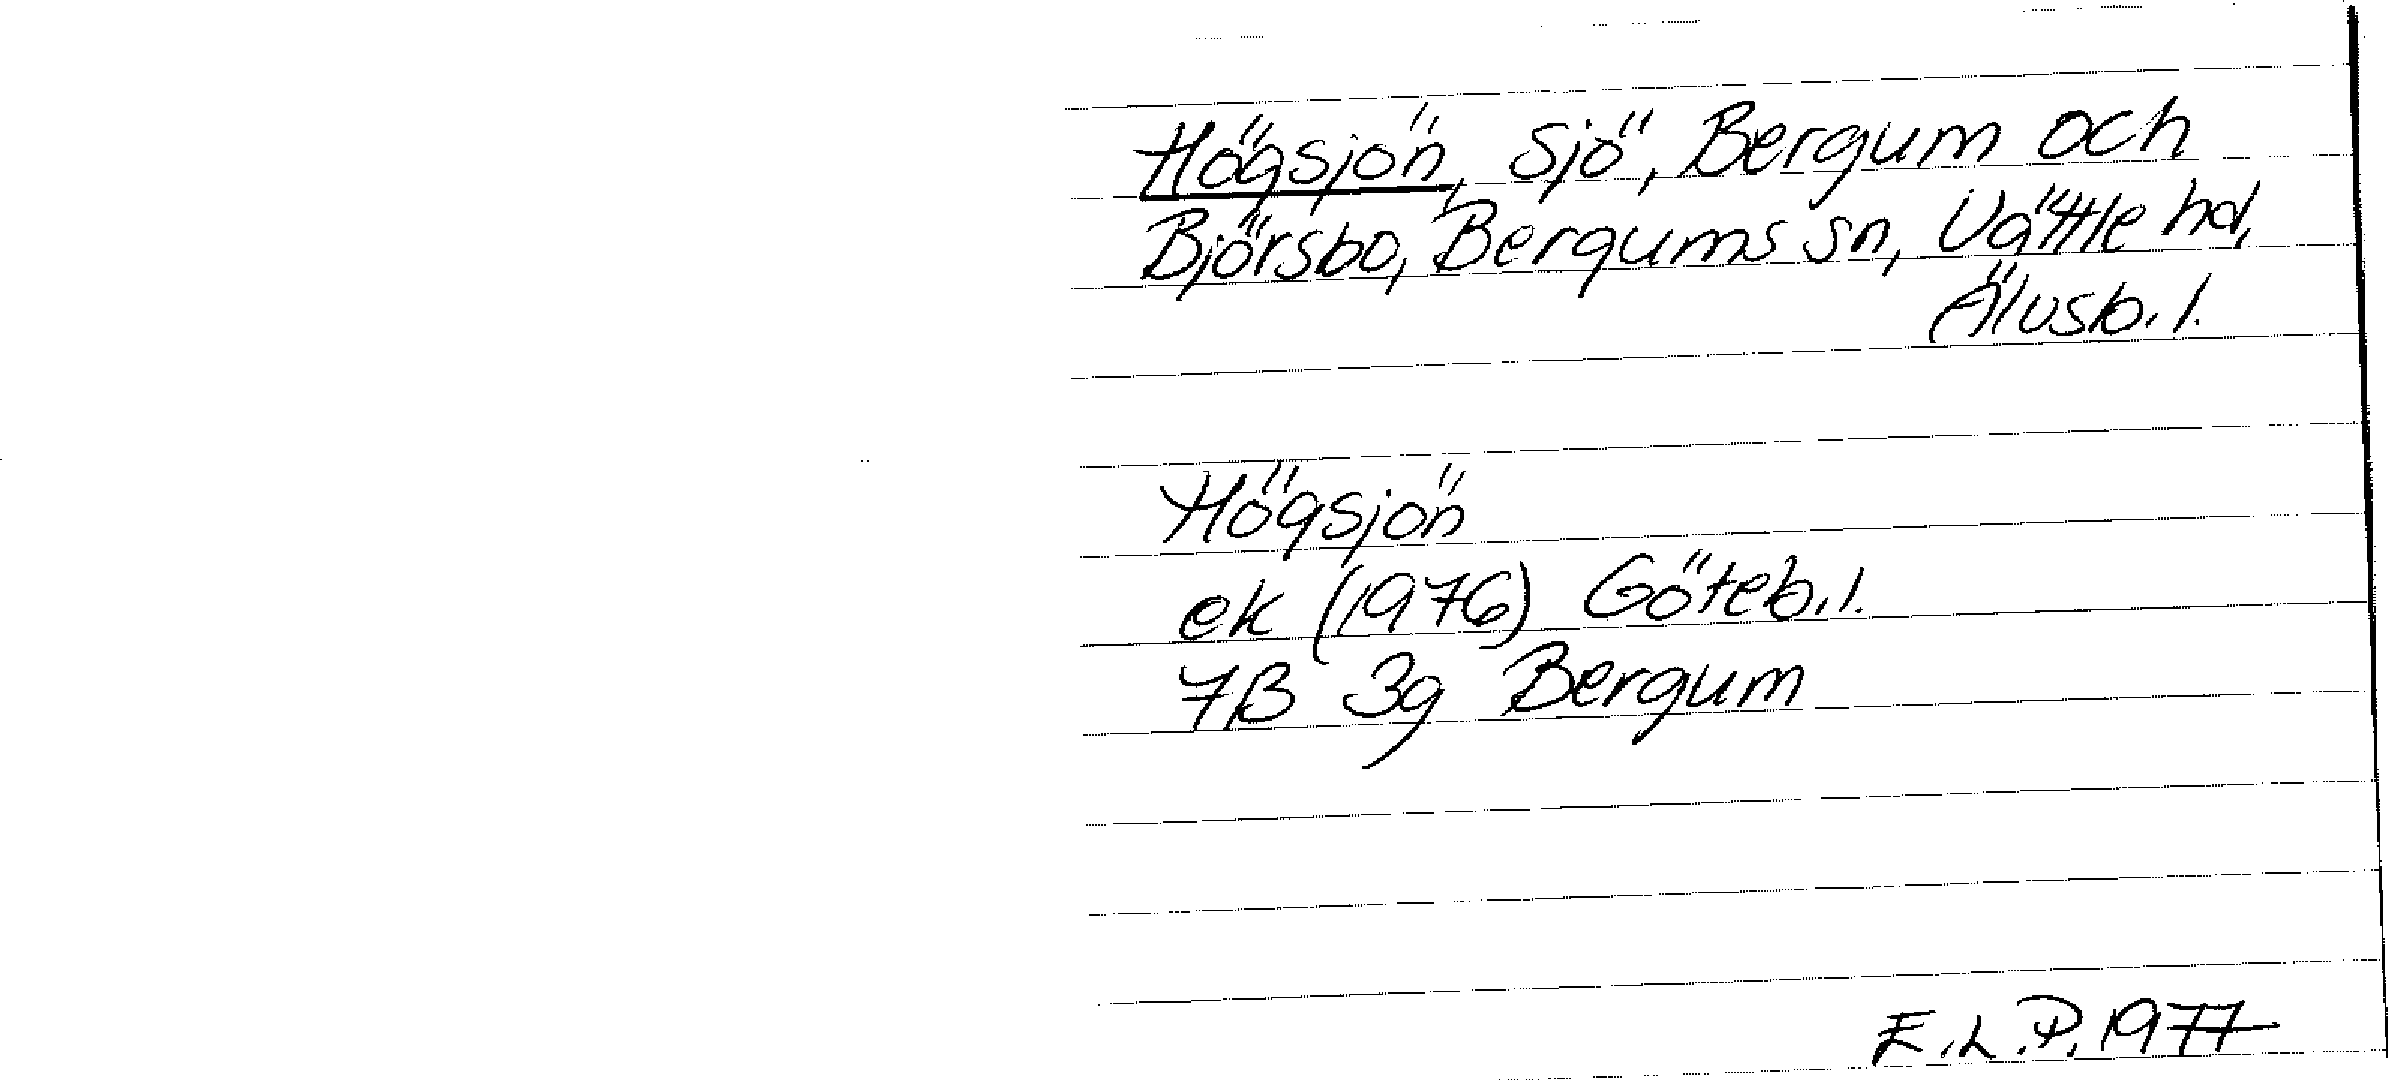 Högsjön, sjö, Bergum och
Björsbo, Bergums sn, Vättle hd,
Älvsb. l.
Högsjön
ek (1976) Göteb. l.
7B 3g Bergum
E.L.P. 1977